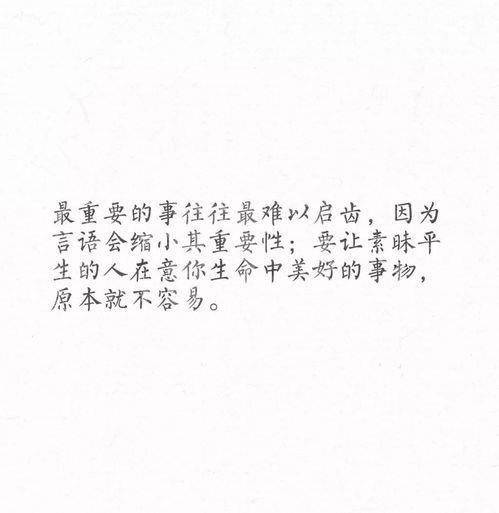 最重要的事往往最难以启齿，因为
言语会缩小其重要性；要让素昧平
生的人在意你生命中美好的事物，
原本就不容易。